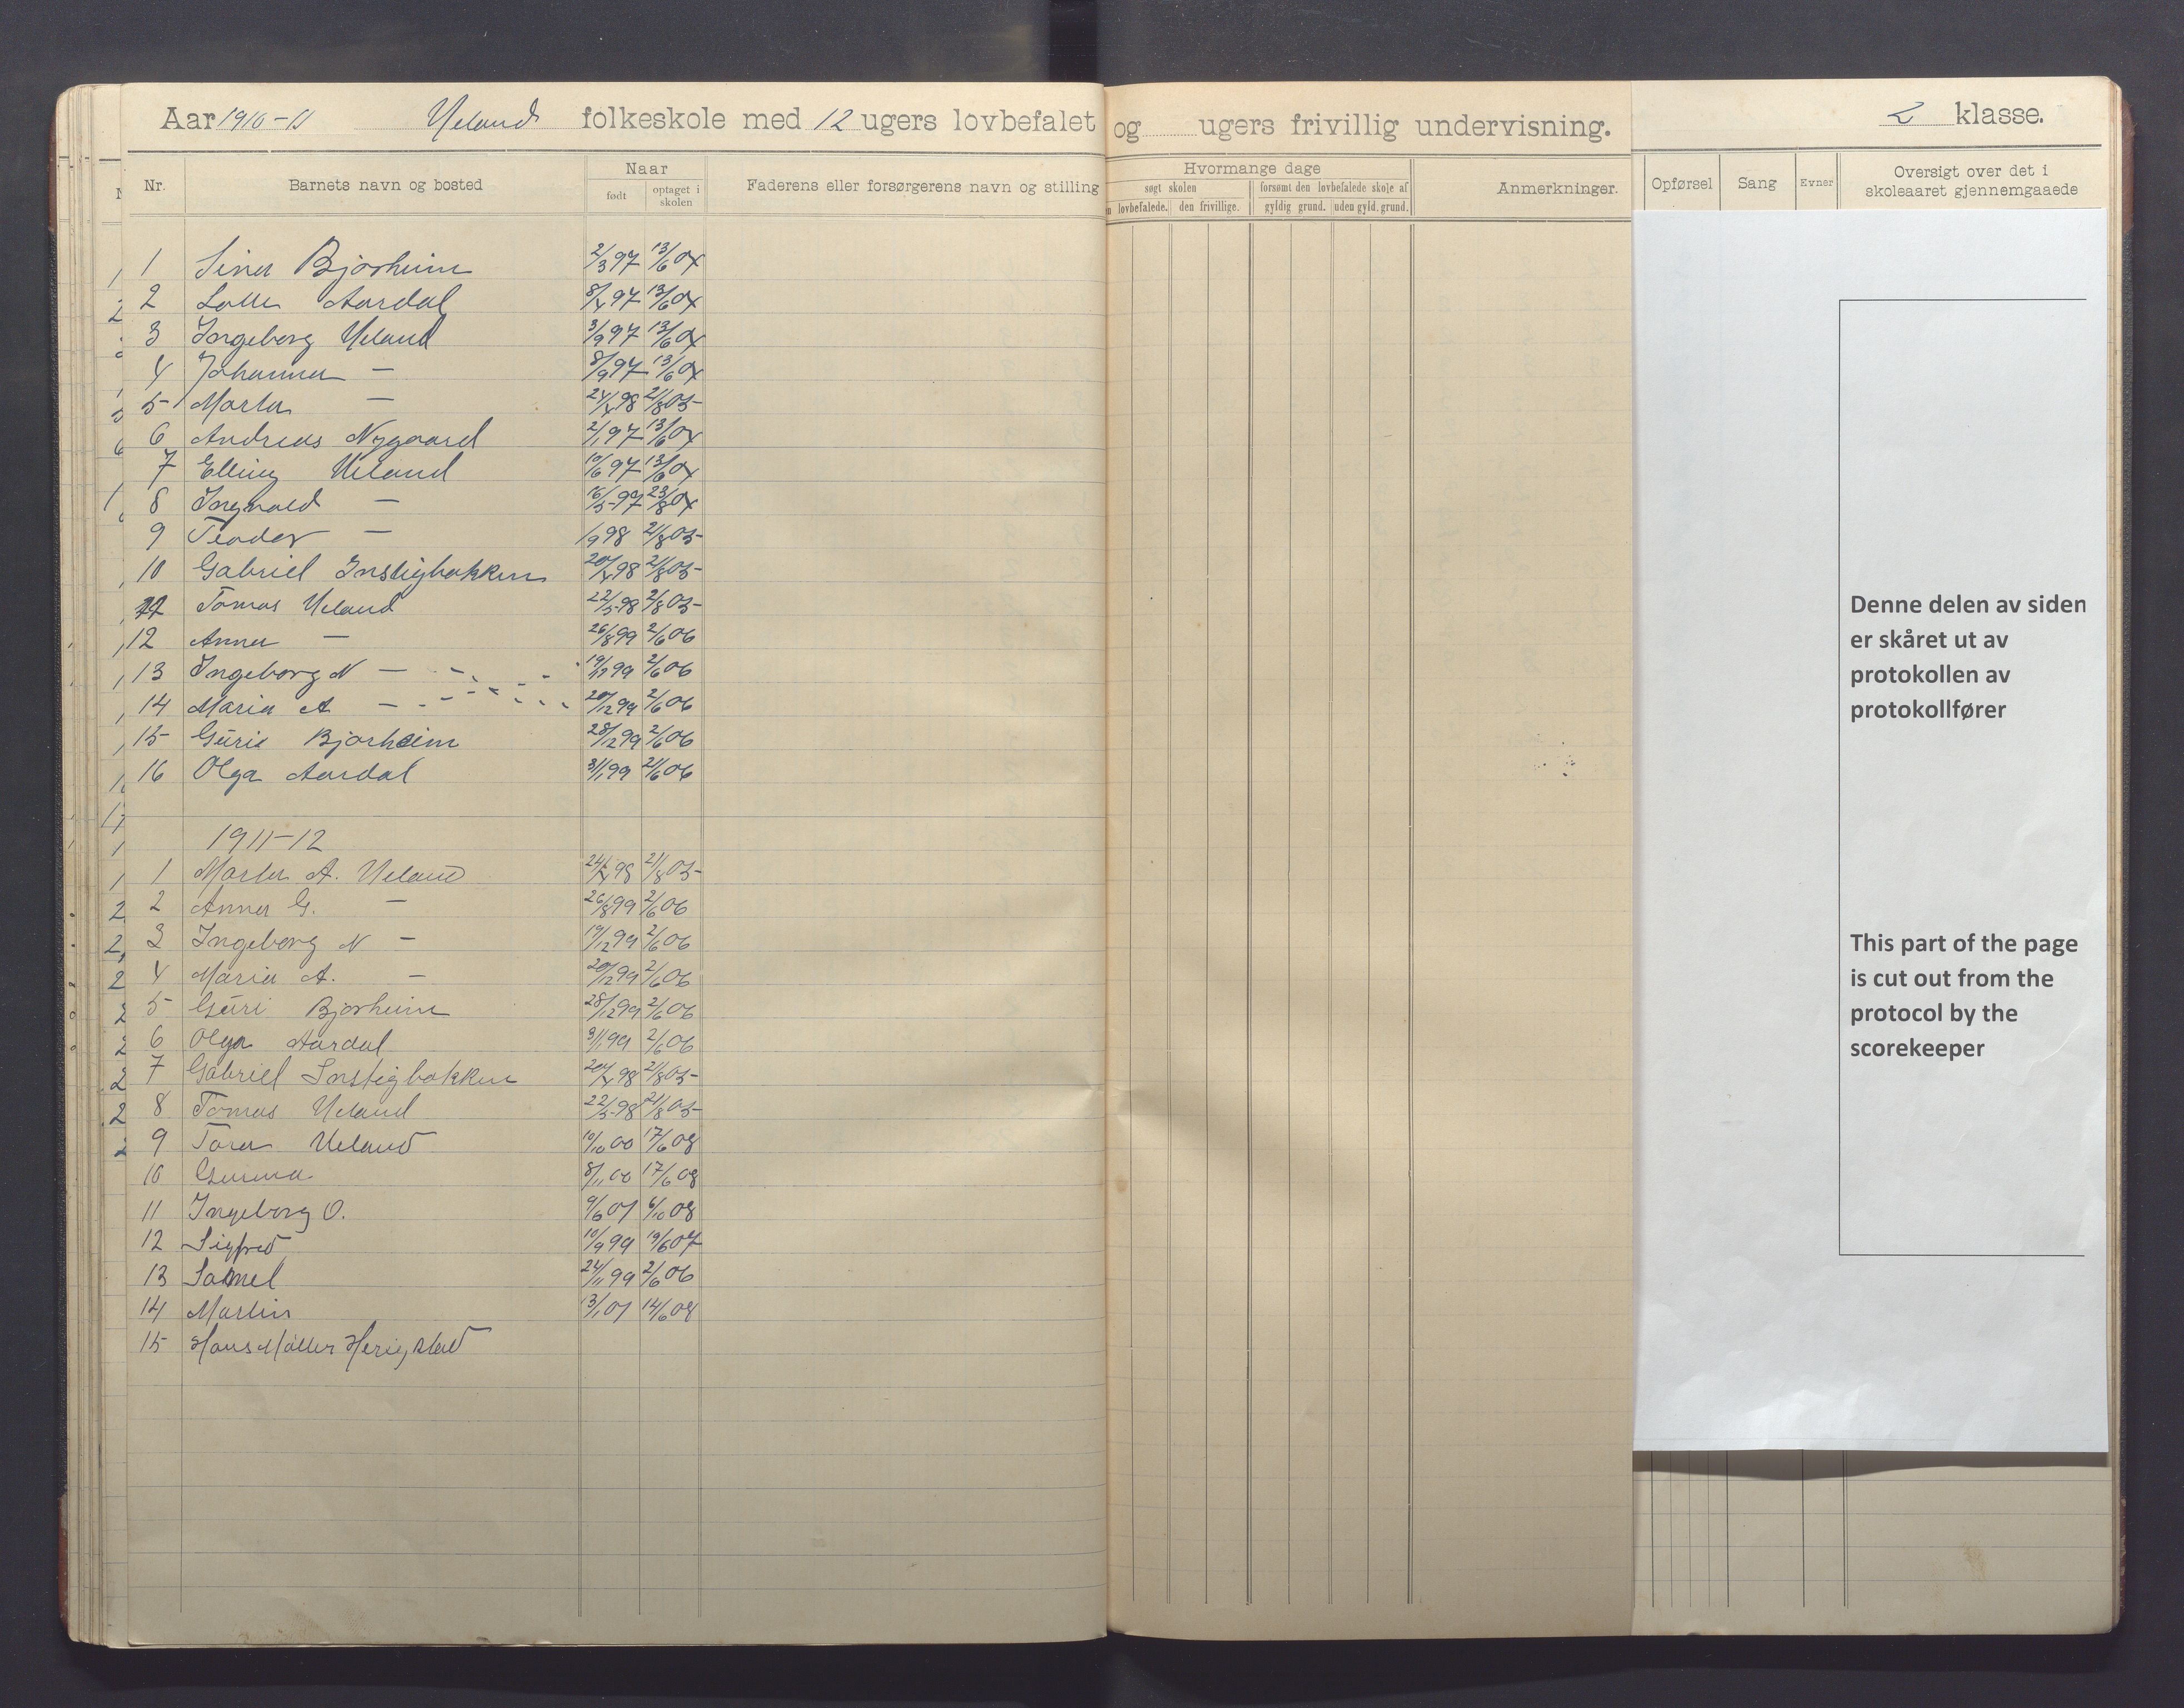 Aar 1910-11 Ueland folkeskole med 12 ugers lovbefalet og ugers frivillig undervisning. 2 klasse.
Nr. Barnets navn og bosted Naar født optaget i skolen Faderens eller forsørgerens navn og stilling Hvormange dage søgt skolen lovbefalede. den frivillige. forsømt den lovbefalede skole af gyldig grund. uden gyld. grund. Anmerkninger. Opførsel Sang Evner Oversigt over det i skoleaaret gjennemgaaede
1 Sina Bjorheim 2/3 97 13/6 04
2 Aardal 8/4 97 13/6 04
3 Ingeborg Ueland 3/9 97 13/6 04
4 Johanna — 8/9 97 13/6 04
5 Marta — 24/4 98 21/8 05
6 Andreas Nygaard 2/1 97 13/6 04
7 Elling Ueland 10/6 97 13/6 04
8 Ingvald — 16/5 97 23/8 04
9 Teodor — 1/9 98 21/8 05
10 Gabriel Instigbakken 20/4 98 21/8 05
11 Tomas Ueland 22/5 98 21/8 05
12 Anna — 26/8 99 2/6 06
13 Ingeborg N — 19/12 99 2/6 06
14 Maria A — 20/12 99 2/6 06
15 Guri Bjorheim 28/12 99 2/6 06
16 Olga Aardal 31/1 99 2/6 06
1911-12
1 Marta A. Ueland 24/4 98 21/8 05
2 Anna G. — 26/8 99 2/6 06
3 Ingeborg N — 19/12 99 2/6 06
4 Maria A. — 20/12 99 2/6 06
5 Guri Bjorheim 28/12 99 2/6 06
6 Olga Aardal 31/1 99 2/6 06
7 Gabriel Instigbakken 20/4 98 21/8 05
8 Tomas Ueland 22/5 98 21/8 05
9 Tora Ueland 10/10 00 17/6 08
10 8/11 00 17/6 08
11 Ingeborg O. 9/6 01 6/10 08
12 Sigfred 10/9 99 19/6 07
13 Samel 24/11 99 2/6 06
14 Martin 13/1 01 14/6 08
15 Hans Møller Herigstad
Denne delen av siden
er skåret ut av
protokollen av
protokollfører
This part of the page
is cut out from the
protocol by the
scorekeeper